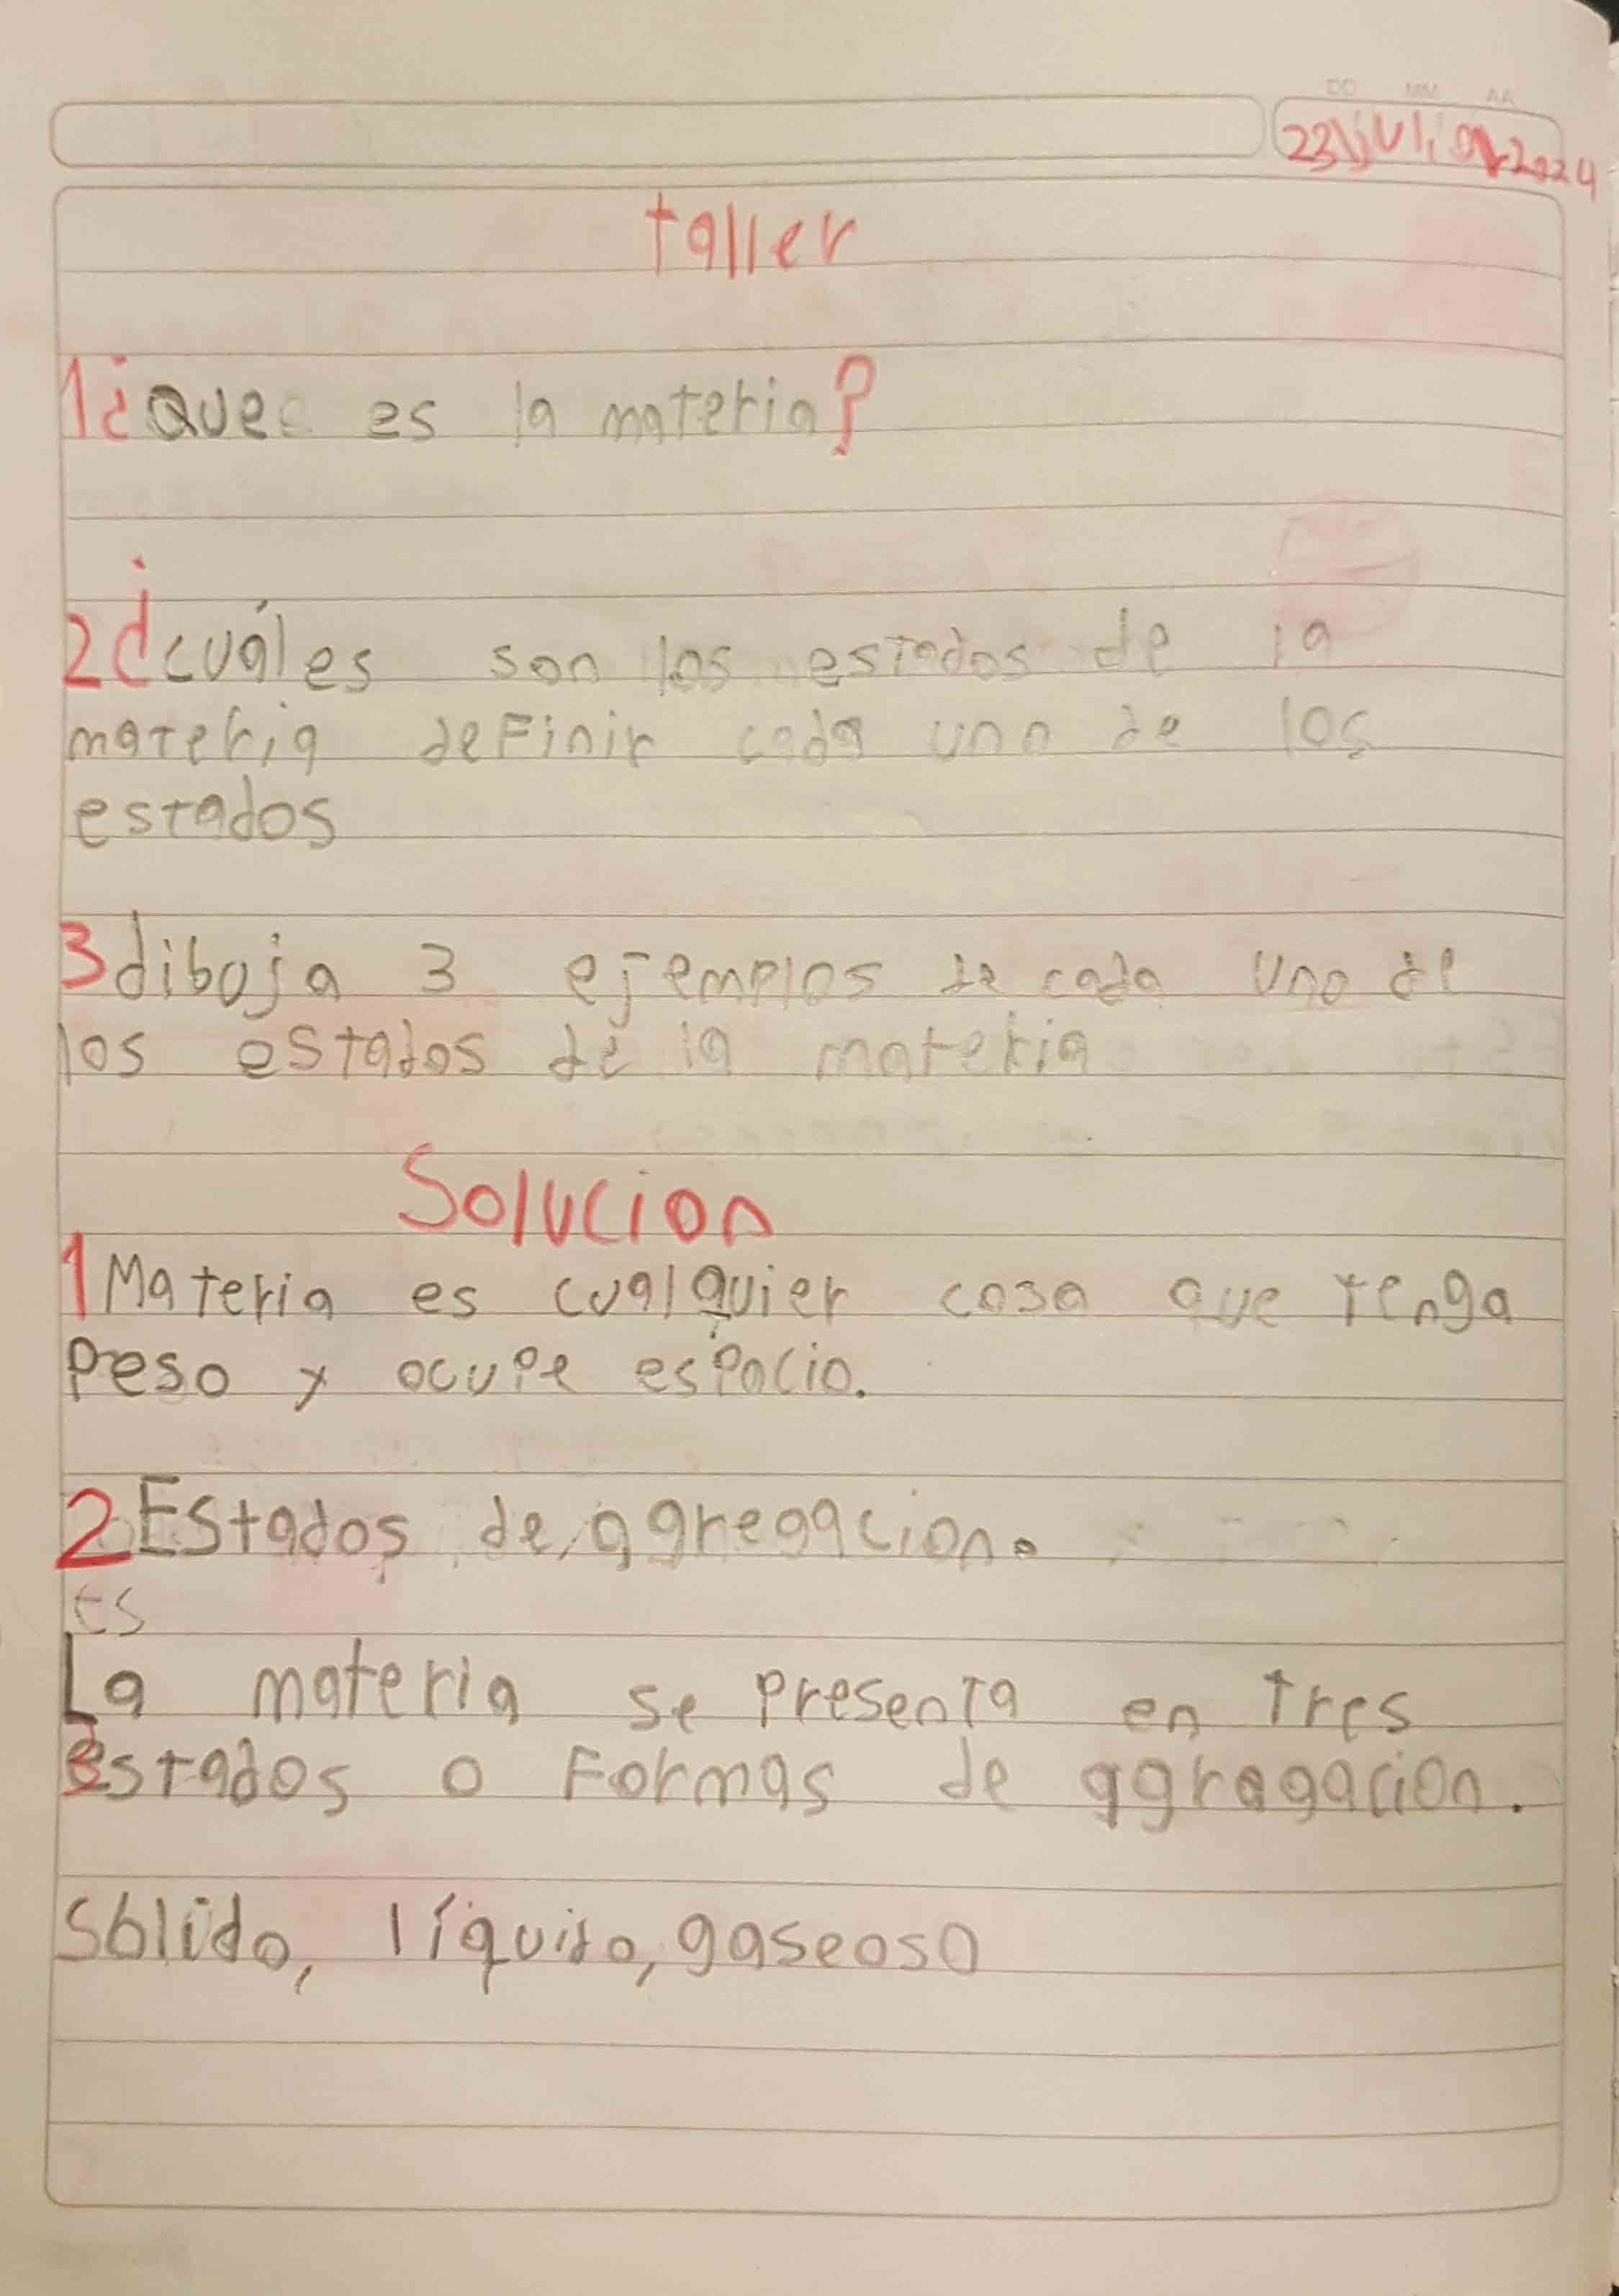 DD MM AA
23 julio 2024
taller
1¿Que es la materia?
2¿cuáles son los estados de la
materia definir cada uno de los
estados
3dibuja 3 ejemplos de cada uno de
los estados de la materia
Solucion
1Materia es cualquier cosa que tenga
Peso y ocupe espacio.
2Estados de agregacion.
es
La materia se presenta en tres
estados o Formas de agragacion.
Sólido, líquido, gaseoso